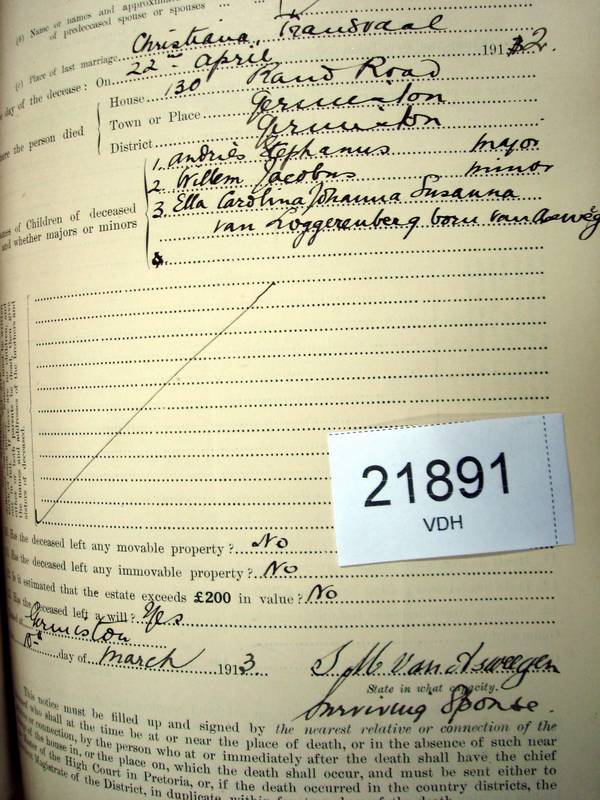 (b) Name or names and approximate
of predeceased spouse or spouses
(c) Place of last marriage Christiana, Transvaal
day of the decease: On 22nd april 1912.
where the person died
House 130 Rand Road
Town or Place Germiston
District Germiston
Names of Children of deceased
and whether majors or minors
1. andries Stephanus major
2. Willem Jacobus minor
3. Ella Carolina Johanna Susanna
van Loggerenberg born van Asweg
4.
21891
VDH
Has the deceased left any movable property? No
Has the deceased left any immovable property? No
Is it estimated that the estate exceeds £200 in value? No
Has the deceased left a will? Yes
Germiston
10th day of March 1913.
S M Van Asweegen
State in what capacity.
Surviving Spouse.
This notice must be filled up and signed by the nearest relative or connection of the
who shall at the time be at or near the place of death, or in the absence of such near
or connection, by the person who at or immediately after the death shall have the chief
of the house in, or the place on, which the death shall occur, and must be sent either to
of the High Court in Pretoria, or, if the death occurred in the country districts, the
Magistrate of the District, in duplicate, within